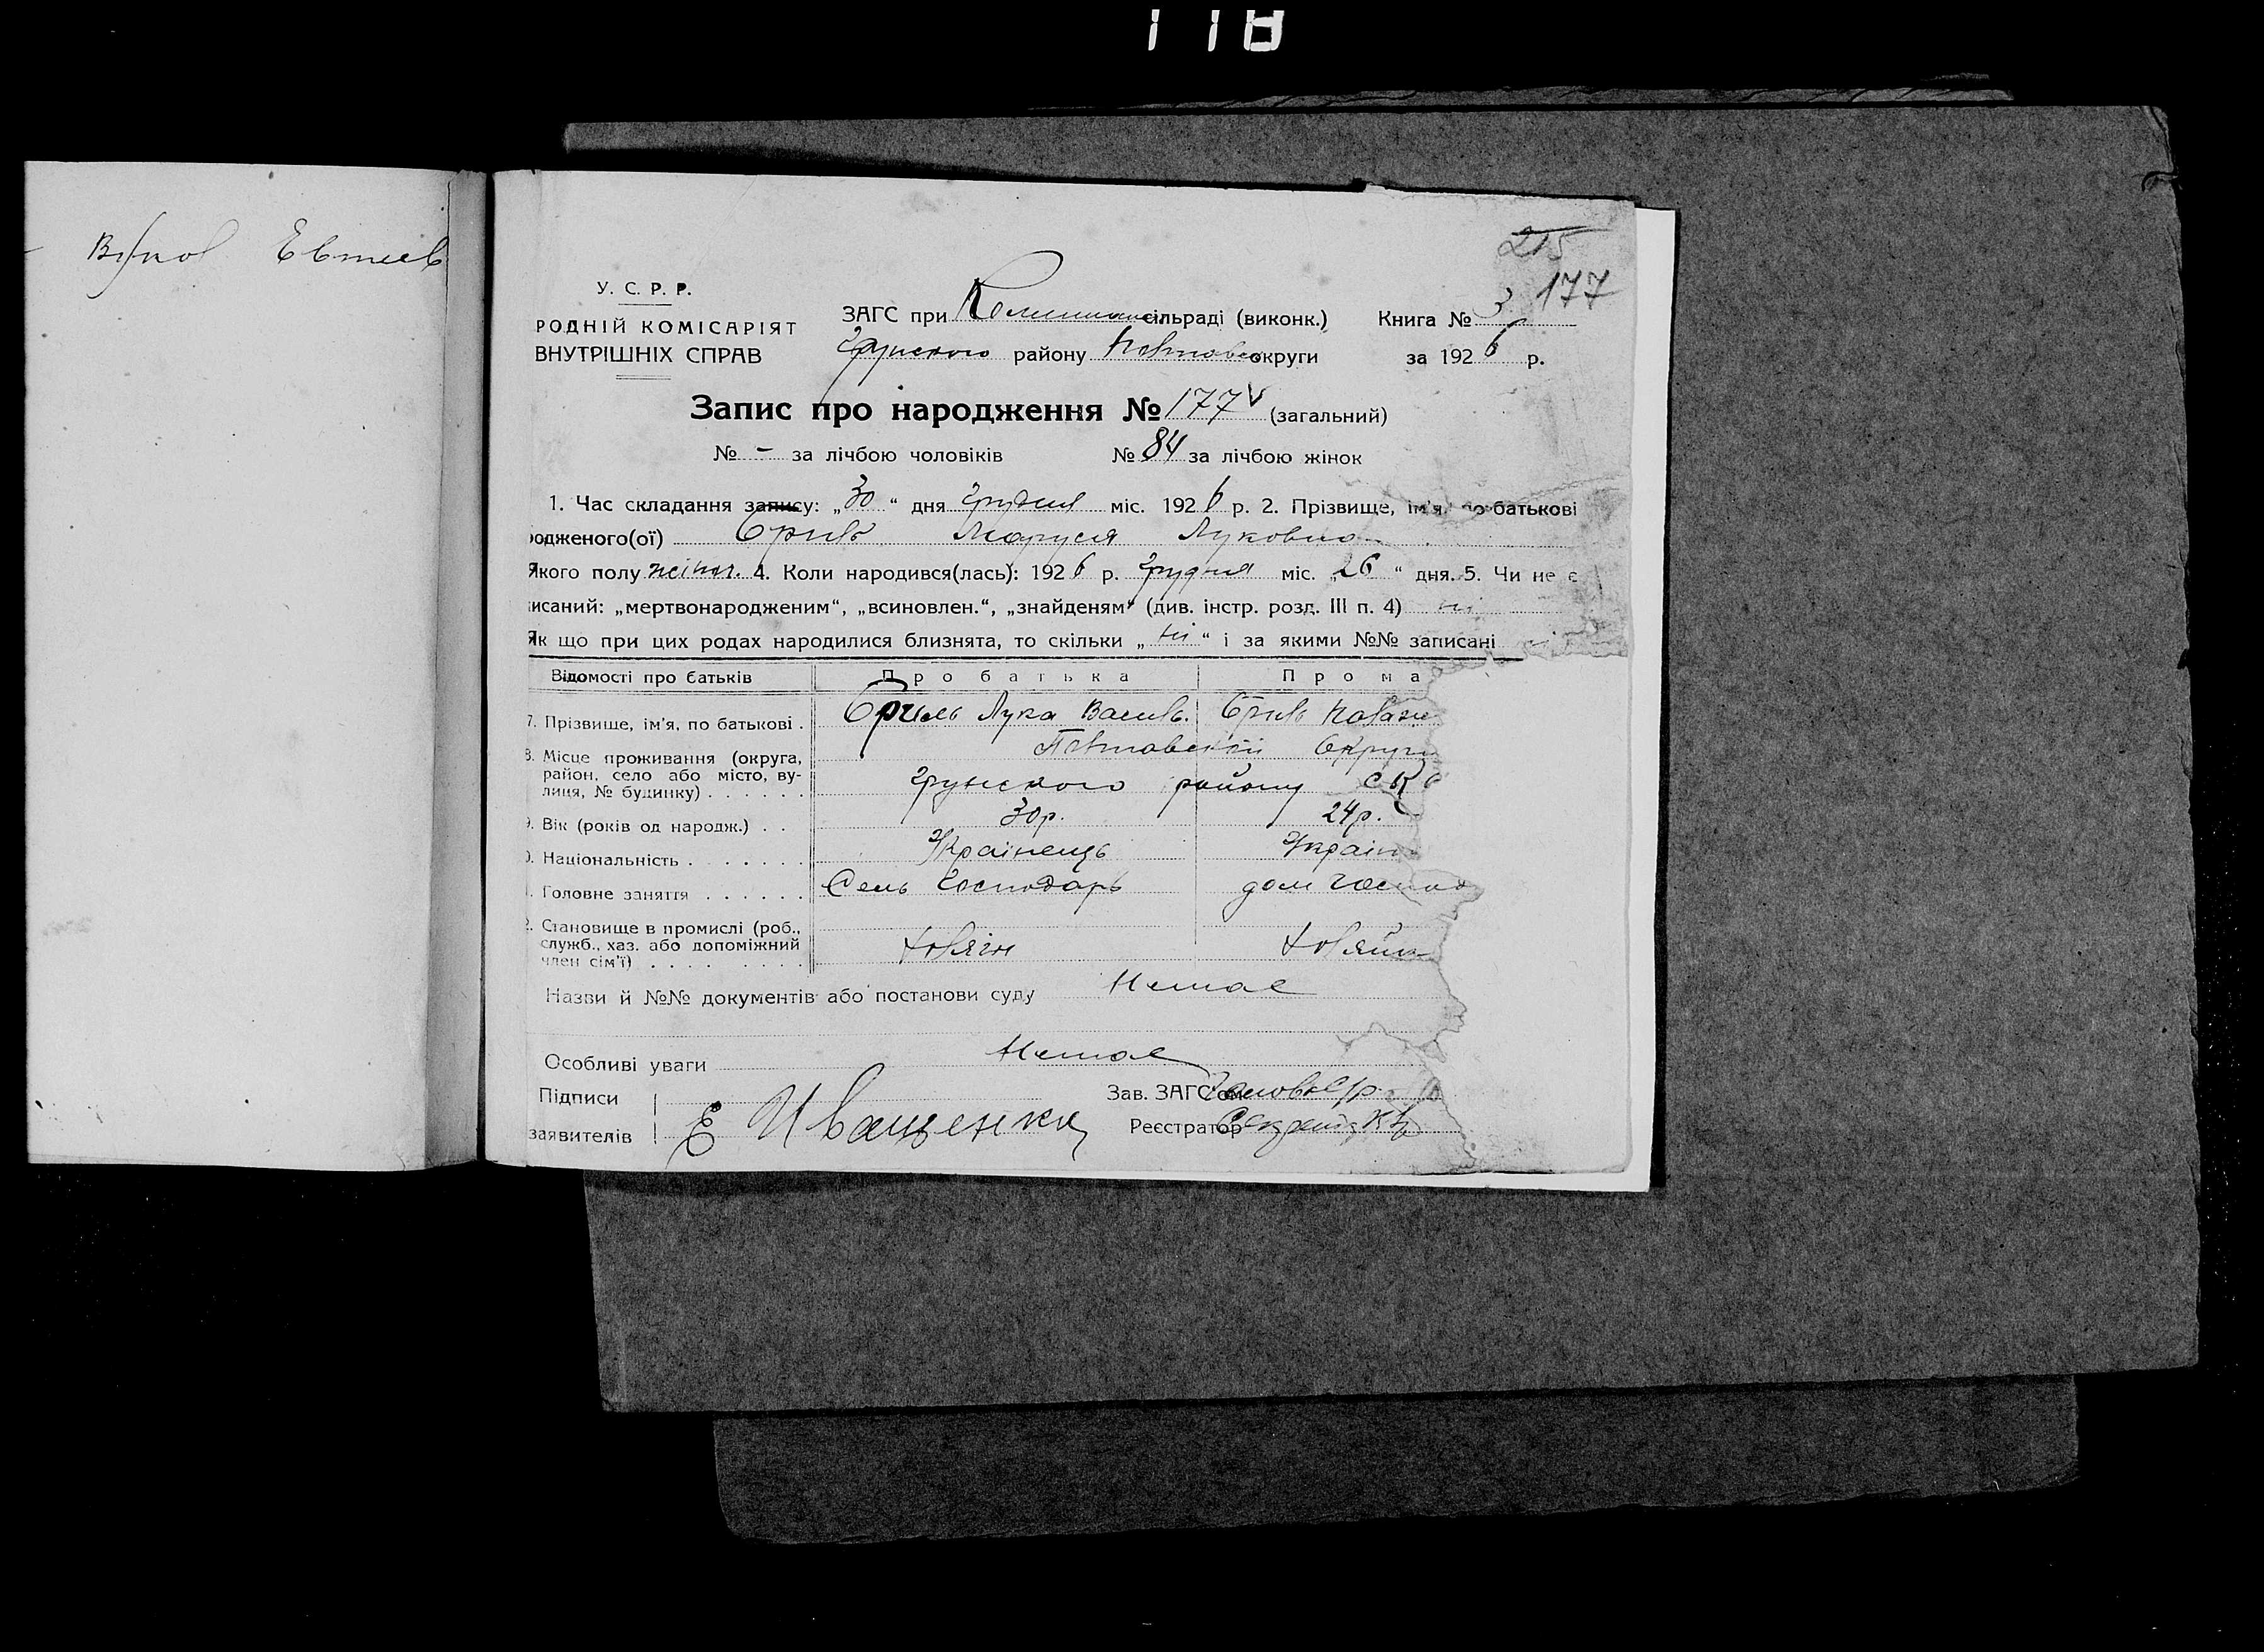 118
215
177
У. С. Р. Р.
РОДНІЙ КОМІСАРІЯТ
ВНУТРІШНІХ СПРАВ
ЗАГС при сільраді (виконк.) Книга № 3
Грунского району округи за 1926 р.
Запис про народження № 177 (загальний)
№ - за лічбою чоловіків № 84 за лічбою жінок
1. Час складання запису: „30“ дня грудня міс. 1926 р. 2. Прізвище, ім'я, по батькові
одженого(ої) Бриль Маруся Луковна
Якого полу жіноч. 4. Коли народився(лась): 1926 р. грудня міс. „26“ дня. 5. Чи не є
исаний: „мертвонародженим“, „всиновлен.“, „знайденям“ (див. інстр. розд. III п. 4) ні
Як що при цих родах народилися близнята, то скільки „ні“ і за якими №№ записані
Відомості про батьків Про батька Про ма
7. Прізвище, ім'я, по батькові . Бриль Лука Василь. Бриль
8. Місце проживання (округа, район, село або місто, вулиця, № будинку) . . . . . . Полтавской Округи
Грунского району с
9. Вік (років од народж.) . . 30 р. 24 р.
0. Національність . . . . . . . Українець Україн
. Головне заняття . . . . . . Сель Господарь дом Господ
2. Становище в промислі (роб., служб., хаз. або допоміжний член сім'ї) . . . . . . . . .
Назви й №№ документів або постанови суду Немае
Особливі уваги Немае
Підписи Зав. ЗАГС'ом
заявителів Е Иващенко Реєстратор